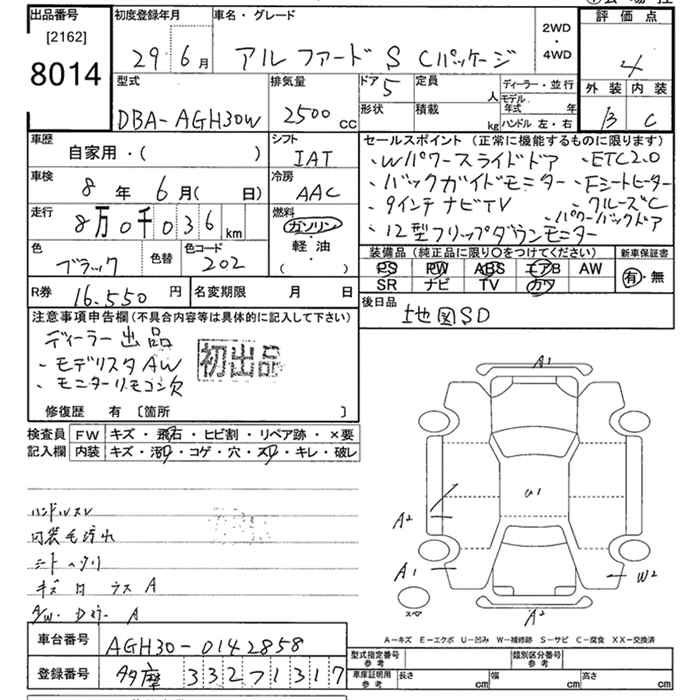 出品番号 初度登録年月 車名・グレード 評価点
[2162]
8014
29年6月 アルファード S Cパッケージ
2WD
・
4WD
4
外装 内装
B C
型式 排気量 ドア 5 定員 人 ディーラー・並行
DBA-AGH30W 2500 cc
形状 積載 kg
モデル年式 年
ハンドル 左・右
車歴 シフト
自家用・( ) IAT
セールスポイント (正常に機能するものに限ります)
・Wパワースライドドア ・ETC2.0
・バックガイドモニター ・Fシートヒーター
・9インチナビTV ・クルーズC
・パワーバックドア
・12型フリップダウンモニター
車検 8年6月( 日) 冷房 AAC
走行 8万0千036 km 燃料
ガソリン
・
軽油
・
( )
色 ブラック 色替 色コード 202
装備品 (純正品に限り○をつけてください) 新車保証書
PS PW ABS エアB AW 有・無
SR ナビ TV カワ
R券 16.550円 名変期限 月 日
後日品 地図SD
注意事項申告欄(不具合内容等は具体的に記入して下さい)
ディーラー出品
・モデリスタAW
・モニターリモコン欠
初出品
修復歴 有 [箇所 ]
検査員 FW キズ・飛石・ヒビ割・リペア跡・×要
記入欄 内装 キズ・汚れ・コゲ・穴・スレ・キレ・破レ
ハンドルスレ
内装毛汚れ
シートヘタリ
キズ 凹 ラス A
A/W・Dカラー A
A1
U1
A2
A1
W2
A2
スペア
A-キズ E-エクボ U-凹み W-補修跡 S-サビ C-腐食 XX-交換済
車台番号 AGH30-0142858
登録番号 多摩 332フ1317
型式指定番号
参考
類別区分番号
参考
車庫証明用
参考
長さ cm 幅 cm 高さ cm